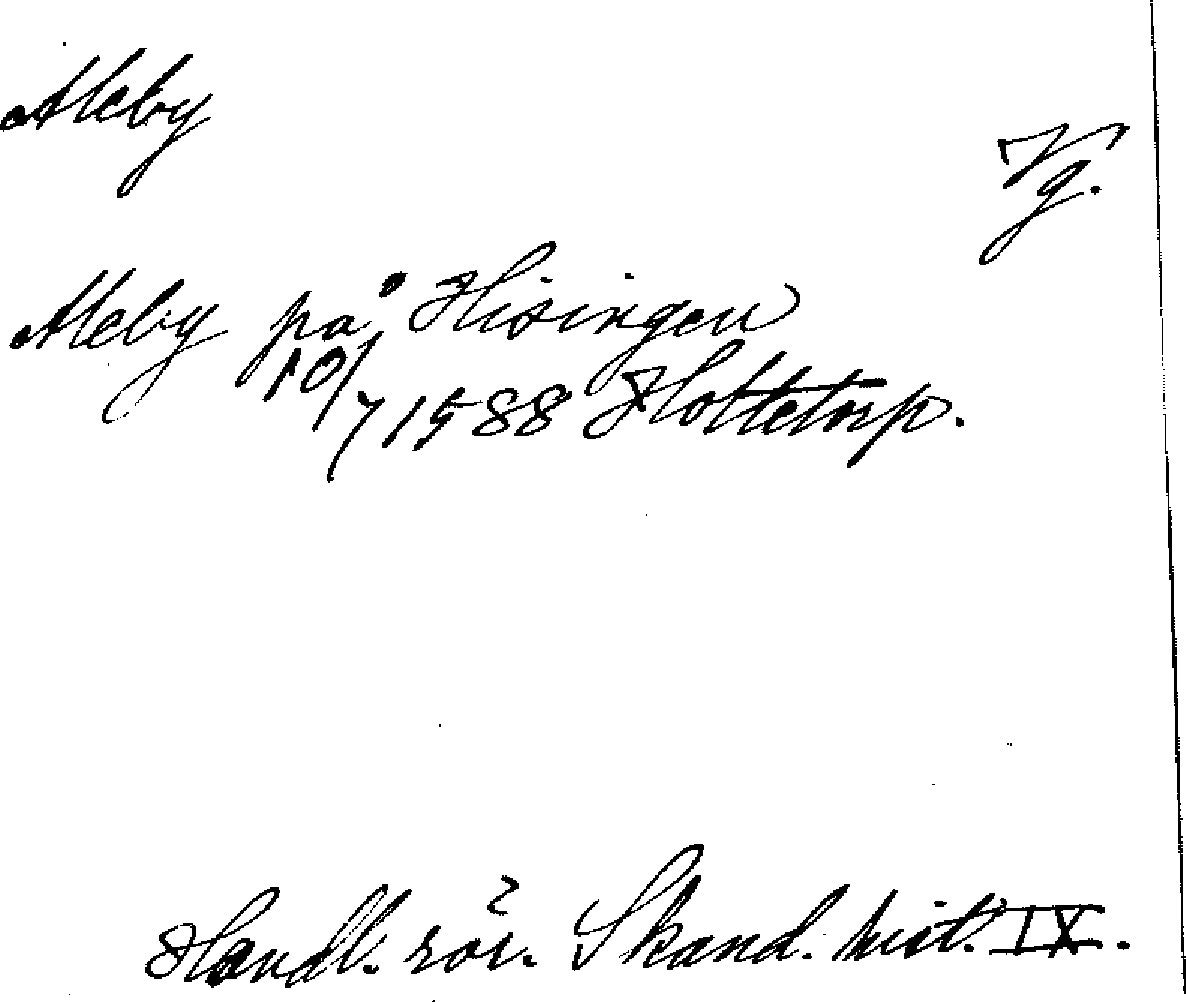 Aleby
Vg.
Aleby på Hisingen
10/7 1588 Hottetorp.
Handl. rör. Skand. hist. IX.